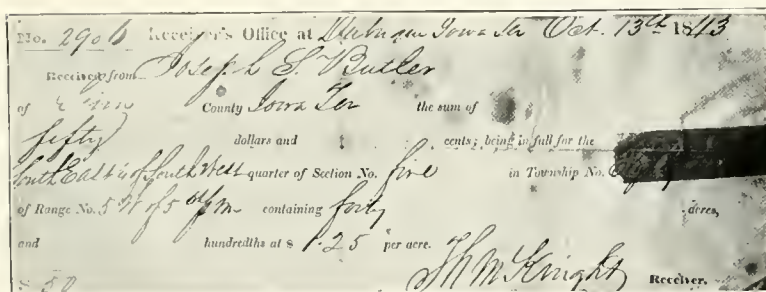 No. 2906 Receiver's Office at Dubuque Iowa Ter Oct. 13th 1843
Received from Joseph S. Butler
of Linn County Iowa Ter the sum of
fifty dollars and cents; being in full for the
South East ¼ of South West quarter of Section No. five in Township No.
of Range No. 5 W of 5th P.M. containing forty acres,
and hundredths at $ 1.25 per acre.
Th McKnight Receiver.
$ 50